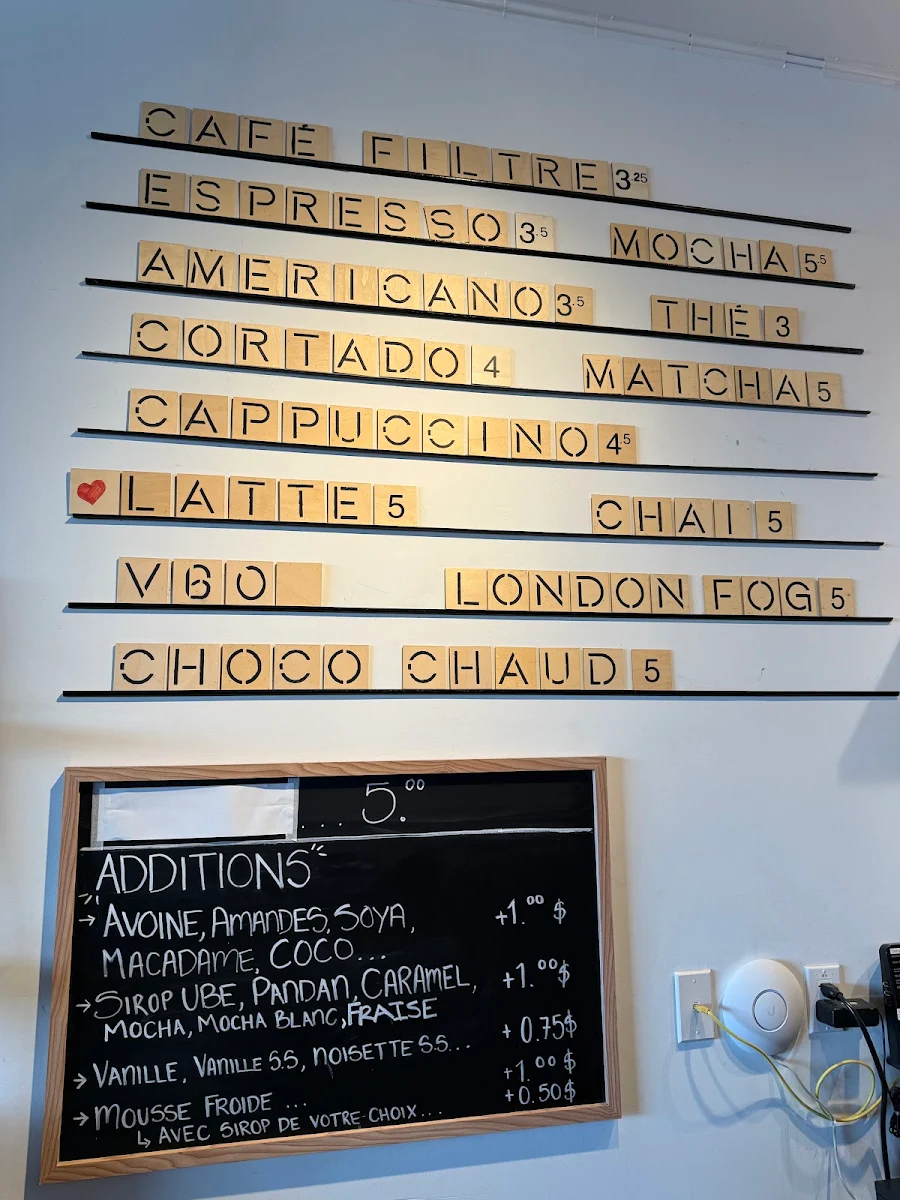 CAFÉ FILTRE 3.25
ESPRESSO 3.5 MOCHA 5.5
AMERICANO 3.5 THÉ 3
CORTADO 4 MATCHA 5
CAPPUCCINO 4.5
LATTE 5 CHAI 5
V60 LONDON FOG 5
CHOCO CHAUD 5
... 5.00
ADDITIONS
→ AVOINE, AMANDES, SOYA, +1.00 $
MACADAME, COCO...
→ SIROP UBE, PANDAN, CARAMEL, +1.00 $
MOCHA, MOCHA BLANC, FRAISE
→ VANILLE, VANILLE S.S, NOISETTE S.S... + 0.75$
→ MOUSSE FROIDE ... +1.00 $
↳ AVEC SIROP DE VOTRE CHOIX... +0.50$